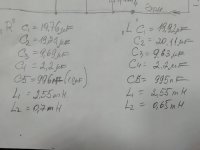 "R" C1 = 19,76µF
C2 = 19,74µF
C3 = 9,69µF
C4 = 2,2µF
CB = 996nF (1µF)
L1 = 2,55mH
L2 = 0,7mH
"L" C1 = 19,92µF
C2 = 20,11µF
C3 = 9,83µF
C4 = 2,2µF
CB = 995nF
L1 = 2,65mH
L2 = 0,65mH